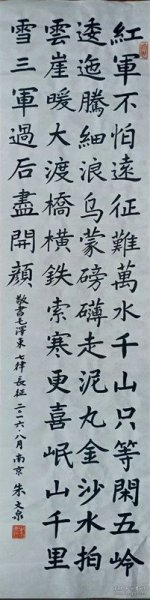 紅軍不怕遠征難萬水千山只等閑五岭
逶迤騰細浪烏蒙磅礴走泥丸金沙水拍
雲崖暖大渡橋橫鉄索寒更喜岷山千里
雪三軍過后盡開顏
敬書毛澤東七律長征二〇一六·八月南京朱文泉